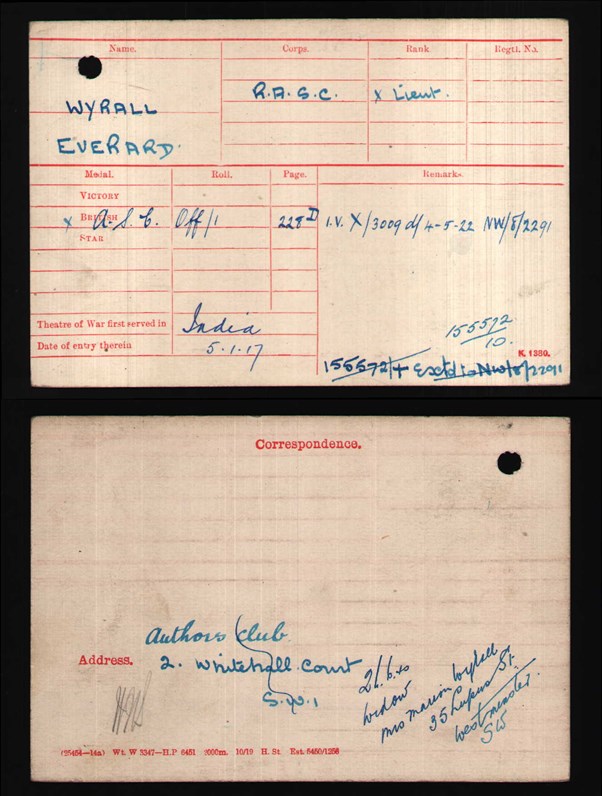 Name. Corps. Rank Regtl. No.
WYRALL R.A.S.C. x Lieut.
EVERARD.
Medal. Roll. Page. Remarks.
VICTORY
x BRITISH A.S.C. Off/1 228D I.V. X/3009 d/ 4-5-22 NW/8/2291
STAR
Theatre of War first served in India
Date of entry therein 5.1.17
155572/10.
K. 1380.
155572/4 Extd in NW/8/2291
Correspondence.
Authors Club.
Address. 2. Whitehall Court
S.W.1
26.6.40
widow
Mrs Marion Wyrall
35 Lupus St.
Westminster.
SW
(25454—14a) Wt. W 3347—H.P 6451 9000m. 10/19 H. St. Est. 5450/1258